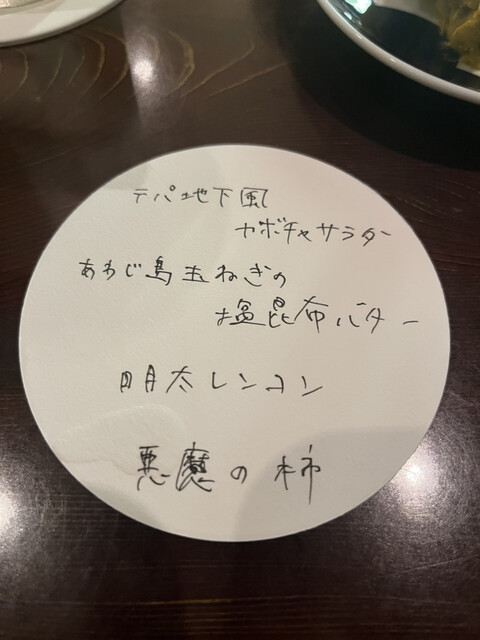 デパ地下風
カボチャサラダー
あわじ島玉ねぎの
塩昆布バター
明太レンコン
悪魔の柿